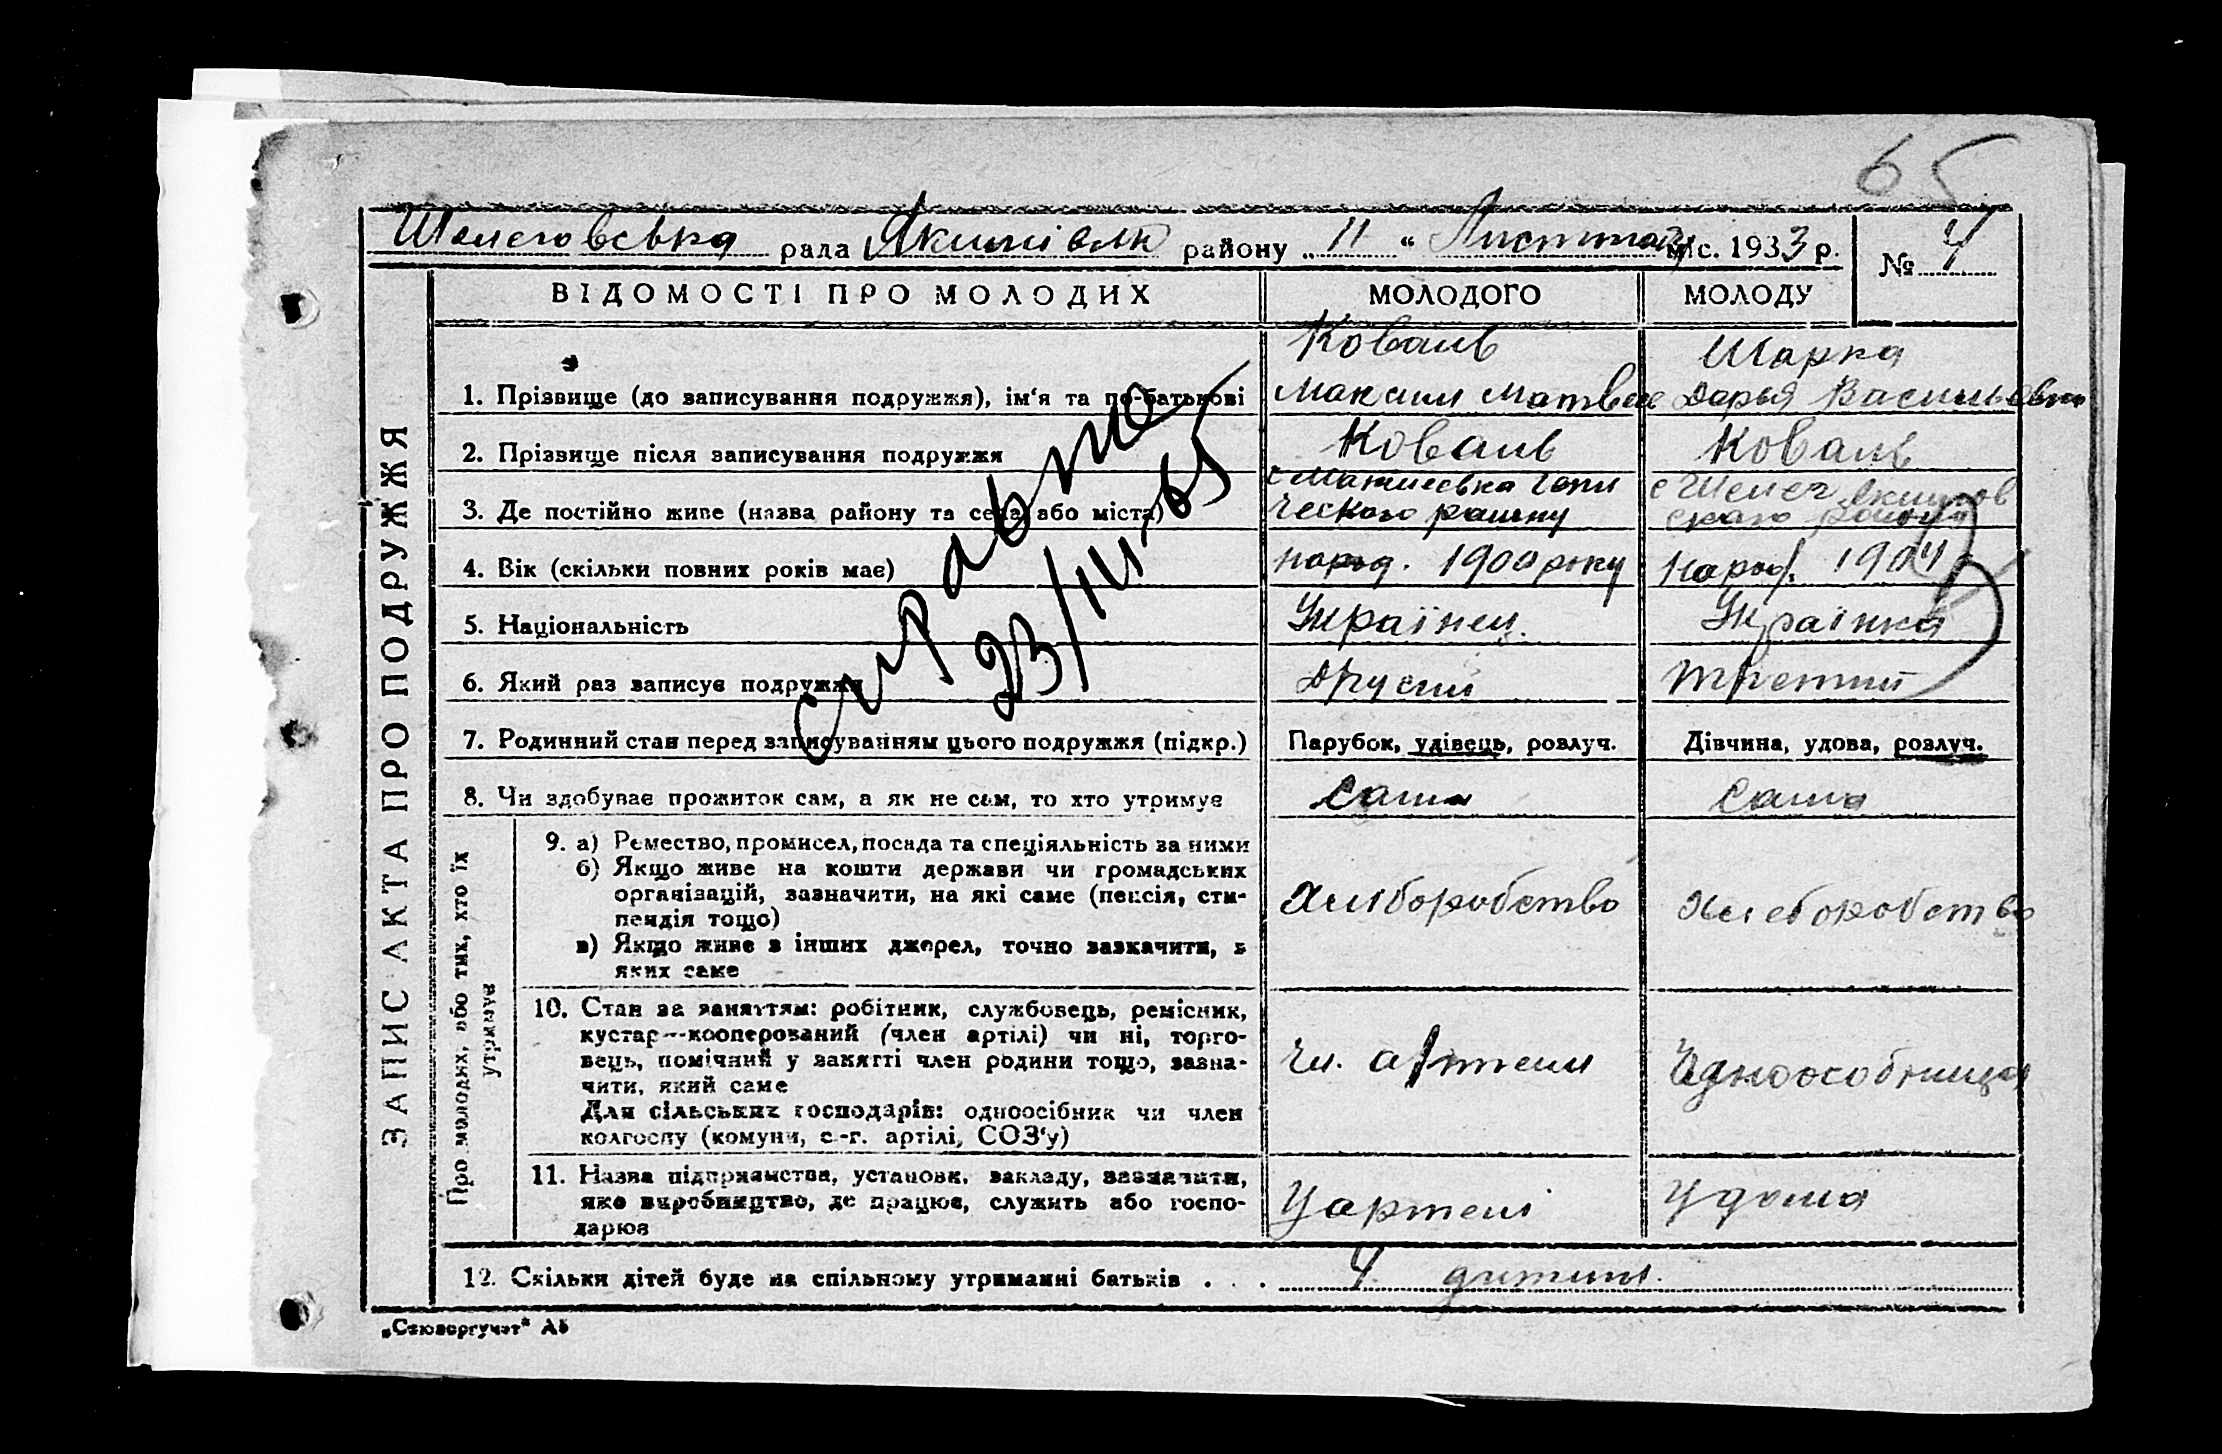 65
Шелеговська рада Якимівськ району „ 11 “ Листопад міс. 1933 р. № 4
ЗАПИС АКТА ПРО ПОДРУЖЖЯ
ВІДОМОСТІ ПРО МОЛОДИХ МОЛОДОГО МОЛОДУ
Коваль Шарка
1. Прізвище (до записування подружжя), ім‘я та по-батькові Максим Матвее Дарья Васильевна
2. Прізвище після записування подружжя Коваль Коваль
3. Де постійно живе (назва району та села або міста)
ческого району ского району
4. Вік (скільки повних років має) народ. 1900 року народ. 1904
5. Національність Українец. Українка
6. Який раз записує подружжя Другий третий
7. Родинний стан перед записуванням цього подружжя (підкр.) Парубок, удівець, розлуч. Дівчина, удова, розлуч.
8. Чи здобуває прожиток сам, а як не сам, то хто утримує сам сама
справлено
23/III-65
Про молодих, або тих, хто їх
утримує
9. а) Ремество, промисел, посада та спеціяльність за ними
б) Якщо живе на кошти держави чи громадських
організацій, зазначити, на які саме (пенсія, сти-
пендія тощо)
Хліборобство Хлеборобство
в) Якщо живе з інших джерел, точно зазначити, з
яких саме
10. Стан за заняттям: робітник, службовець, ремісник,
кустар—кооперований (член артілі) чи ні, торго-
вець, помічний у занятті член родини тощо, зазна-
чити, який саме
чл. артели Єдноособница
Для сільських господарів: одноосібник чи член
колгоспу (комуни, с.-г. артілі, СОЗ‘у)
11. Назва підприємства, установи, закладу, зазначити,
яке виробництво, де працює, служить або госпо-
дарює
У артелі У дома
12. Скільки дітей буде на спільному утриманні батьків . . . 4 дитини.
„Союзоргучет“ А5